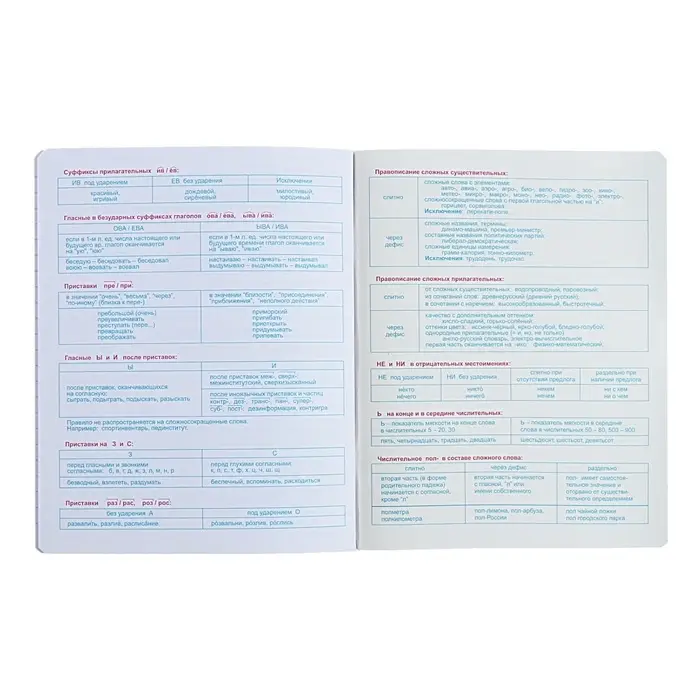 Суффиксы прилагательных ив / ев:
ИВ под ударением ЕВ без ударения Исключения
красивый, дождевой, милостивый,
игривый сиреневый юродивый
Гласные в безударных суффиксах глаголов ова / ева, ыва / ива:
ОВА / ЕВА ЫВА / ИВА
если в 1-м л. ед. числа настоящего или если в 1-м л. ед. числа настоящего или
будущего вр. глагол оканчивается будущего времени глагол оканчивается
на "ую", "юю" на "ываю", "иваю"
беседую – беседовать – беседовал настаиваю – настаивать – настаивал
воюю – воевать – воевал выдумываю – выдумывать – выдумывал
Приставки пре / при:
в значении "очень", "весьма", "через", в значении "близости", "присоединения",
"по-иному" (близка к пере-) "приближения", "неполного действия"
пребольшой (очень) приморский
преувеличивать пригибать
преступать (пере...) приоткрыть
прекращать придумывать
преображать прибывать
Гласные Ы и И после приставок:
Ы И
после приставок, оканчивающихся после приставок меж-, сверх-
на согласную: межинститутский, сверхизысканный
сыграть, подыграть, подыскать, разыскать после иноязычных приставок и частиц
контр-, дез-, транс-, пан-, супер-,
суб-, пост-: дезинформация, контригра
Правило не распространяется на сложносокращенные слова.
Например: спортинвентарь, пединститут.
Приставки на З и С:
З С
перед гласными и звонкими перед глухими согласными:
согласными: б, в, г, д, ж, з, л, м, н, р к, п, с, т, ф, х, ц, ч, ш, щ
безводный, взлететь, раздумать беспечный, вспоминать, расходиться
Приставки раз / рас, роз / рос:
без ударения А под ударением О
развалить, разлив, расписание розвальни, розлив, роспись
Правописание сложных существительных:
слитно сложные слова с элементами:
авто-, авиа-, аэро-, агро-, био-, вело-, гидро-, зоо-, кино-,
метео-, микро-, макро-, моно-, нео-, радио-, фото-, электро-
сложносокращенные слова с первой глагольной частью на "и":
горицвет, сорвиголова
Исключение: перекати-поле
через дефис сложные названия, термины:
динамо-машина, премьер-министр
составные названия политических партий:
либерал-демократическая
сложные единицы измерения:
грамм-калория, тонно-километр
Исключения: трудодень, трудочас
Правописание сложных прилагательных:
слитно от сложных существительных: водопроводный, пароходный
из сочетания слов: древнерусский (древние русские),
в сочетании с наречием: высокообразованный, быстротечный
через дефис качество с дополнительным оттенком:
кисло-сладкий, горько-солёный
оттенки цвета: иссиня-чёрный, ярко-голубой, бледно-голубой
однородные прилагательные (+ и, но, не только)
англо-русский словарь, электро-вычислительное
первая часть оканчивается на -ико: физико-математический
НЕ и НИ в отрицательных местоимениях:
НЕ под ударением НИ без ударения слитно при раздельно при
отсутствии предлога наличии предлога
некто никто некем не с кем
нечего ничего ничем ни о чем
Ь на конце и в середине числительных:
Ь – показатель мягкости на конце слова Ь – показатель мягкости в середине
в числительных 5 – 20, 30 слова в числительных 50 – 80, 500 – 900
пять, четырнадцать, тридцать, двадцать шестьдесят, шестьсот, девятьсот
Числительное пол- в составе сложного слова:
слитно через дефис раздельно
вторая часть (в форме вторая часть начинается пол- имеет самостоя-
родительного падежа) с гласной, "л" или тельное значение и
начинается с согласной, имени собственного оторвано от существи-
кроме "л" тельного определением
полметра пол-лимона, пол-арбуза, пол чайной ложки
полкилометра пол-России пол городского парка